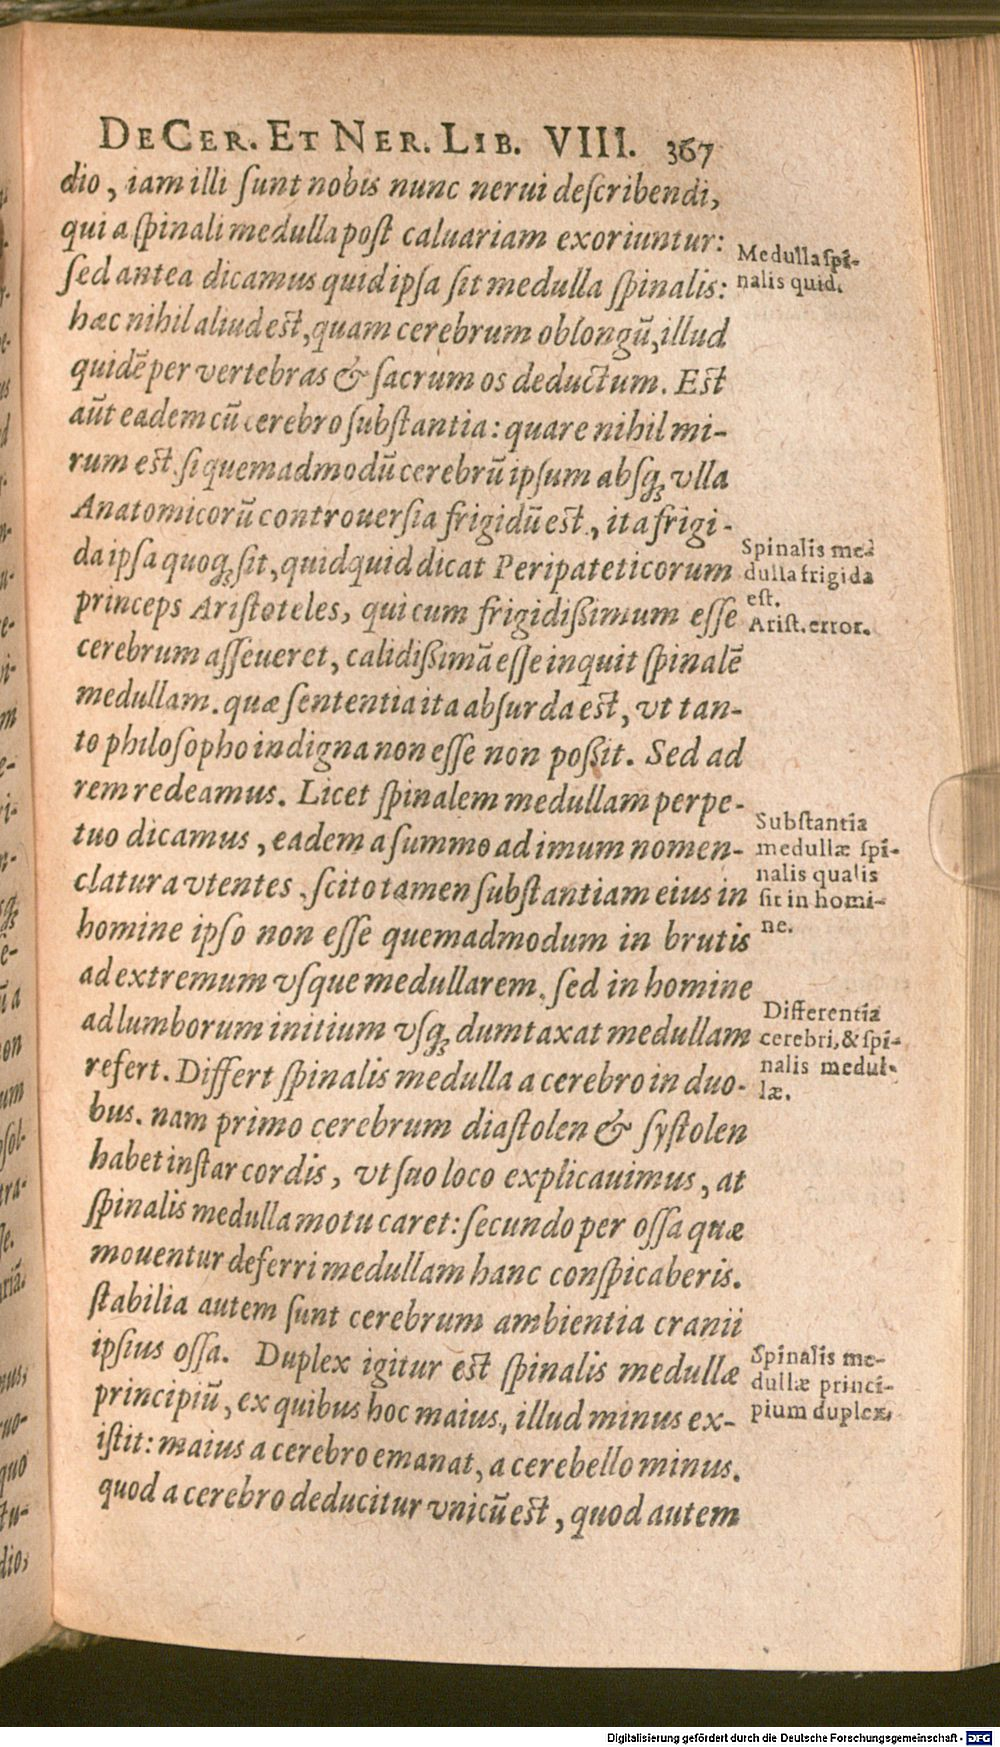 DE CER. ET NER. LIB. VIII. 367
dio, iam illi ſunt nobis nunc nerui deſcribendi,
qui a ſpinali medulla poſt caluariam exoriuntur:
ſed antea dicamus quid ipſa ſit medulla ſpinalis:
hæc nihil aliud est, quam cerebrum oblongũ, illud
quidẽ per vertebras & ſacrum os deductum. Est
aũt eadem cũ cerebro ſubſtantia: quare nihil mi-
rum est. ſi quemadmodũ cerebrũ ipſum abſqꝫ vlla
Anatomicorũ controuerſia frigidũ est, ita frigi-
da ipſa quoqꝫ ſit, quidquid dicat Peripateticorum
princeps Ariſtoteles, qui cum frigidißimum eſſe
cerebrum aſſeueret, calidißimã eſſe inquit ſpinalẽ
medullam. quæ ſententia ita abſurda est, vt tan-
to philoſopho indigna non eſſe non poßit. Sed ad
rem redeamus. Licet ſpinalem medullam perpe-
tuo dicamus, eadem a ſummo ad imum nomen-
clatura vtentes. ſcito tamen ſubſtantiam eius in
homine ipſo non eſſe quemadmodum in brutis
ad extremum vſque medullarem. ſed in homine
ad lumborum initium vſqꝫ dumtaxat medullam
refert. Differt ſpinalis medulla a cerebro in duo-
bus. nam primo cerebrum diaſtolen & ſyſtolen
habet inſtar cordis, vt ſuo loco explicauimus, at
ſpinalis medulla motu caret: ſecundo per oſſa quæ
mouentur deferri medullam hanc conſpicaberis.
ſtabilia autem ſunt cerebrum ambientia cranii
ipſius oſſa. Duplex igitur est ſpinalis medullæ
principiũ, ex quibus hoc maius, illud minus ex-
iſtit: maius a cerebro emanat, a cerebello minus.
quod a cerebro deducitur vnicũ est, quod autem
Medulla ſpi-
nalis quid.
Spinalis me-
dulla frigida
eſt.
Ariſt. error.
Subſtantia
medullæ ſpi-
nalis qualis
ſit in homi-
ne.
Differentia
cerebri, & ſpi-
nalis medul-
læ.
Spinalis me-
dullæ princi-
pium duplex.
Digitalisierung gefördert durch die Deutsche Forschungsgemeinschaft - DFG